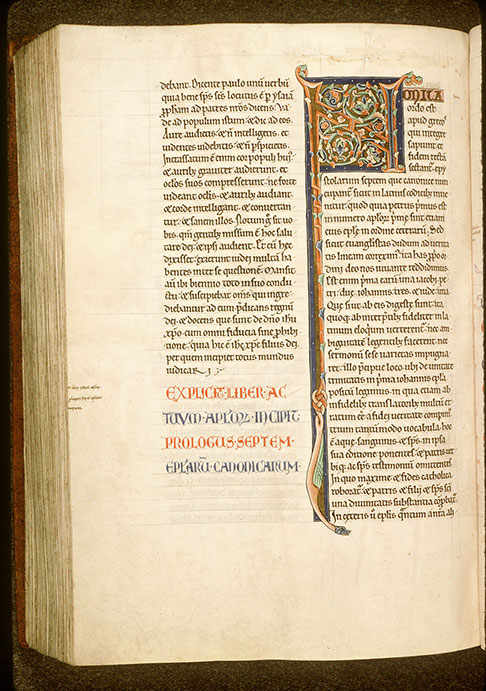 debant. Dicente paulo unū verbū
quia bene sp̄s sc̄s locutus ē p ysaiā
ꝓpham ad patres nr̄os dicens. Va
de ad populum istum ⁊ dic ad eos.
Aure audietis ⁊ n̄ intelligetis. et
videntes videbitis ⁊ n̄ pspicietis.
Incrassatum ē enim cor populi hui᷒
⁊ auribꝫ graviter audierunt. et
oculos suos compresserunt. ne forte
videant oculis ⁊ auribꝫ audiant
⁊ corde intelligant ⁊ convertan
tur ⁊ sanem illos. Notum ḡ sit vo
bis. qm̄ gentibꝫ missum ē hoc salu
tare dei ⁊ ipsi audient. Et cū hec
dixisset exierunt iudei multā ha
bentes inter se questionē. Mansit
aūt ibi biennio toto in suo condu
ctu ⁊ suscipiebat om̄s qui ingre
diebantur ad eum p̄dicans regnū
dei ⁊ docens que sunt de dn̄o ihū
xp̄o cum omni fiducia sine ꝓhibi
tione. quia hic ē ih̄c xp̄c filius dei
per quem incipiet totus mundus
iudicari.
EXPLICIT· LIBER· AC
TUUM· APL̄OꝜ· INCIPIT
PROLOGUS· SEPTEM·
EPL̄ARŪ CANONICARUM·
NON ITA
ordo est
apud grecos
qui integre
sapiunt et
fidem rectā
sectant᷑. epy
stolarum septem que canonice nun
cupant᷑ sicut in latinis codicibꝫ inve
nitur. quod quia petrus p̄mus est
in numero apl̄oꝝ p̄me sint etiam
eius epl̄e in ordine ceterarū. Sed
sicut euangelistas dudum ad verita
tis lineam correximꝰ. ita has ꝓprio or
dini deo nos iuvante reddidimus.
Est enim p̄ma earū una iacobi. pe
tri due. iohannis tres. ⁊ iude una.
Que sicut ab eis digeste sunt. ita
quoqꝫ ab interp̄tibꝫ fideliter in la
tinum eloqium verterent᷑. nec am
biguitatē legentibꝫ facerent. nec
sermonū sese varietas impugna
ret. illo p̄cipue loco ubi de unitate
trinitatis in p̄ma iohannis epl̄a
positū legimus. in qua etiam ab
infidelibꝫ translatoribꝫ multū er
ratum ēē a fidei veritate comperimꝰ.
trium tantū modo vocabula. hoc
ē aque. sanguinis ⁊ sp̄s in ipsa
sua editione ponentes ⁊ patris ver
biqꝫ ac sp̄s testimoniū omittentes.
In quo maxime ⁊ fides catholica
roborat᷑ ⁊ patris ⁊ filii ⁊ sp̄s sc̄i
una divinitatis substantia cōprobat᷑.
In ceteris ū epl̄is quantum nr̄a ali